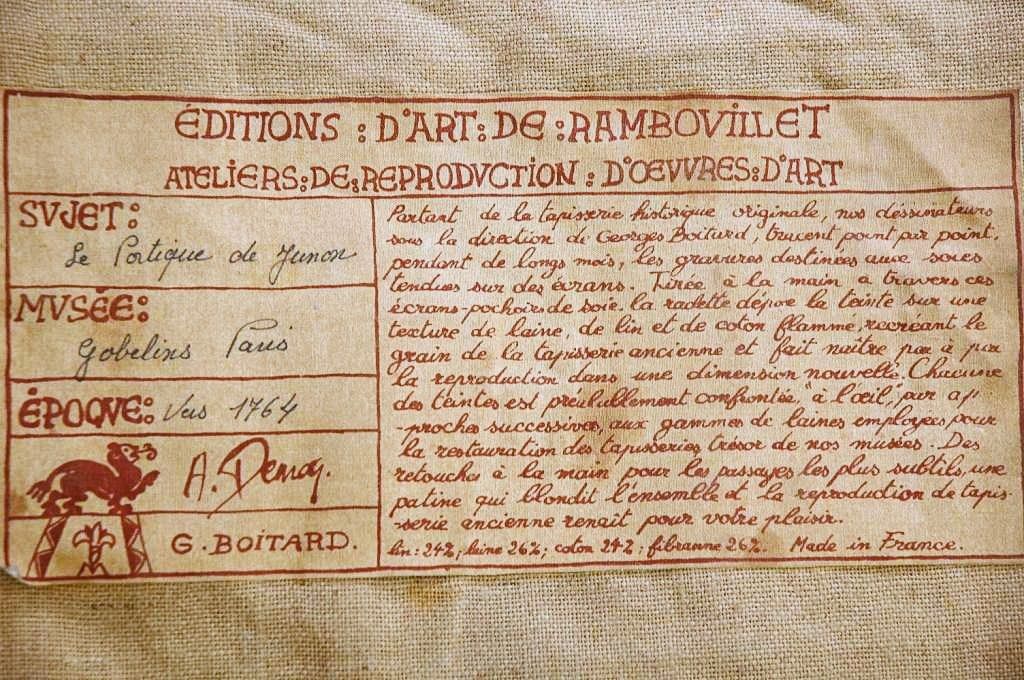 ÉDITIONS : D'ART : DE : RAMBOVILLET
ATELIERS : DE : REPRODVCTION : D'OEVVRES : D'ART
SVJET :
Le Portique de Junon
MVSÉE :
Gobelins Paris
ÉPOQVE : Vers 1764
G. BOITARD.
Partant de la tapisserie historique originale, nos déssinateurs
sous la direction de Georges Boitard, tracent point par point,
pendant de longs mois, les gravures destinées aux soies
tendues sur des écrans. Tirée à la main à travers ces
écrans-pochoirs de soie. la raclette dépose la teinte sur une
texture de laine, de lin et de coton flammé, recréant le
grain de la tapisserie ancienne et fait naître par à pur
la reproduction dans une dimension nouvelle. Chacune
des teintes est préalablement confrontée, "à l'œil", par ap-
-proches successives, aux gammes de laines employées pour
la restauration des tapisseries trésor de nos musées. Des
retouches à la main pour les passages les plus subtils, une
patine qui blondit l'ensemble et la reproduction de tapis-
-serie ancienne renait pour votre plaisir.
lin : 24% ; laine 26% ; coton 24% ; fibranne 26%. Made in France.